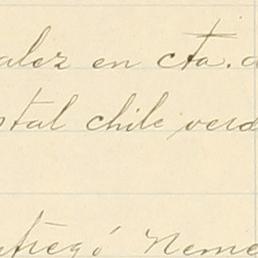 alez en cta. d
stal chile verd
ntregó Neme